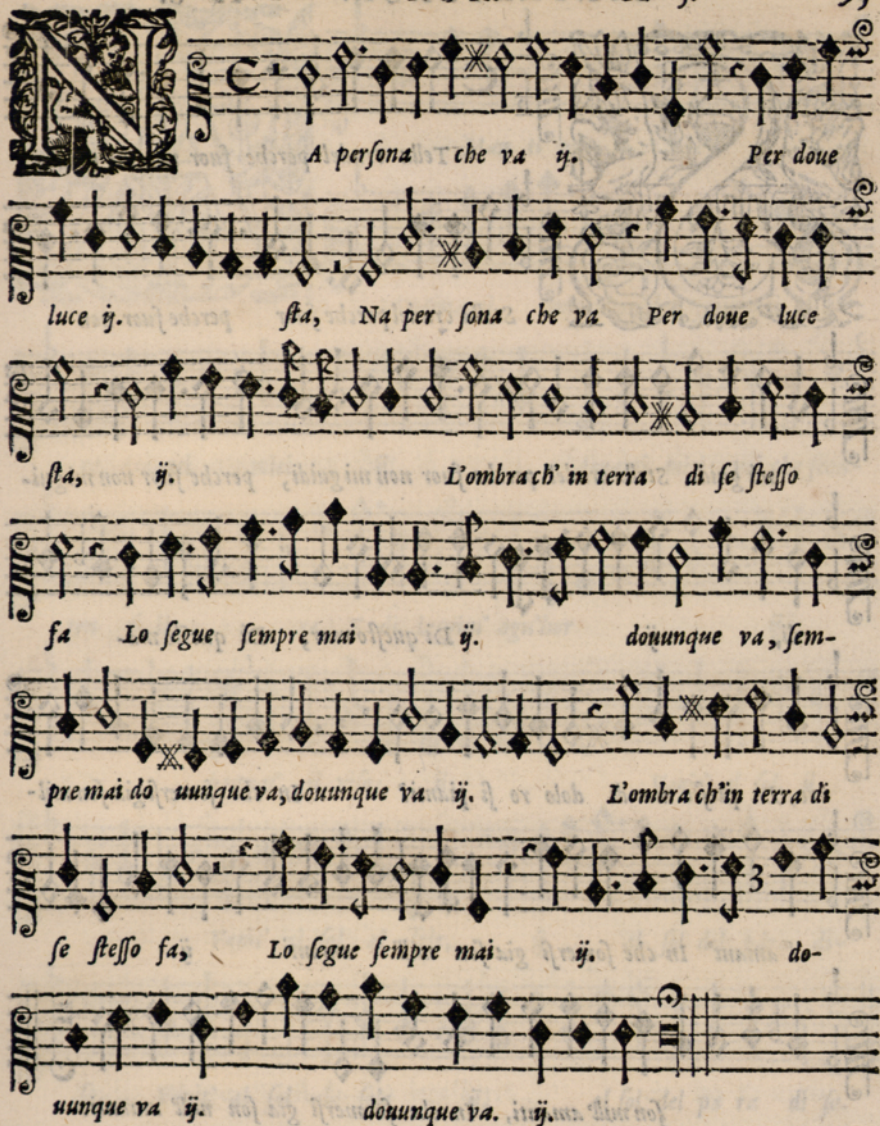 NA perſona che va ij. Per doue
luce ij. ſta, Na per ſona che va Per doue luce
ſta, ij. L'ombra ch' in terra di ſe ſteſſo
fa Lo ſegue ſempre mai ij. douunque va, ſem-
pre mai do uunque va, douunque va ij. L'ombra ch'in terra di
ſe ſteſſo fa, Lo ſegue ſempre mai ij. 3 do-
uunque va ij. douunque va. ij.